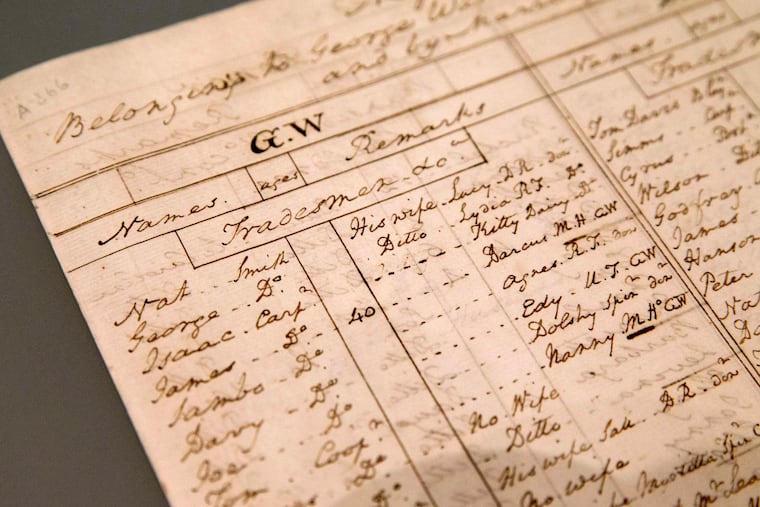 A 366
Belonging to George Wa
and by Marri
G.W
Names. ages Remarks Names. ages
Tradesmen &ca Tradesm
Nat Smith His wife Lucy D.R. don
George Do Ditto Lydia R.F. Do
Isaac Carpr 40 Kitty Dairy Do
James Do Darcus M.H. GW
Sambo Do Agnes R.F. don
Davy Do Edy U.F. GW
Joe Do Dolshy Spinr don
Tom Coopr Nanny M.Ho GW
Do No Wife
Ditto
His wife Sall D.R. don
No wife
Tom Davis
Simms Carp
Cyrus Post
Wilson Di
Godfrey
James
Hanson
Peter
Nat